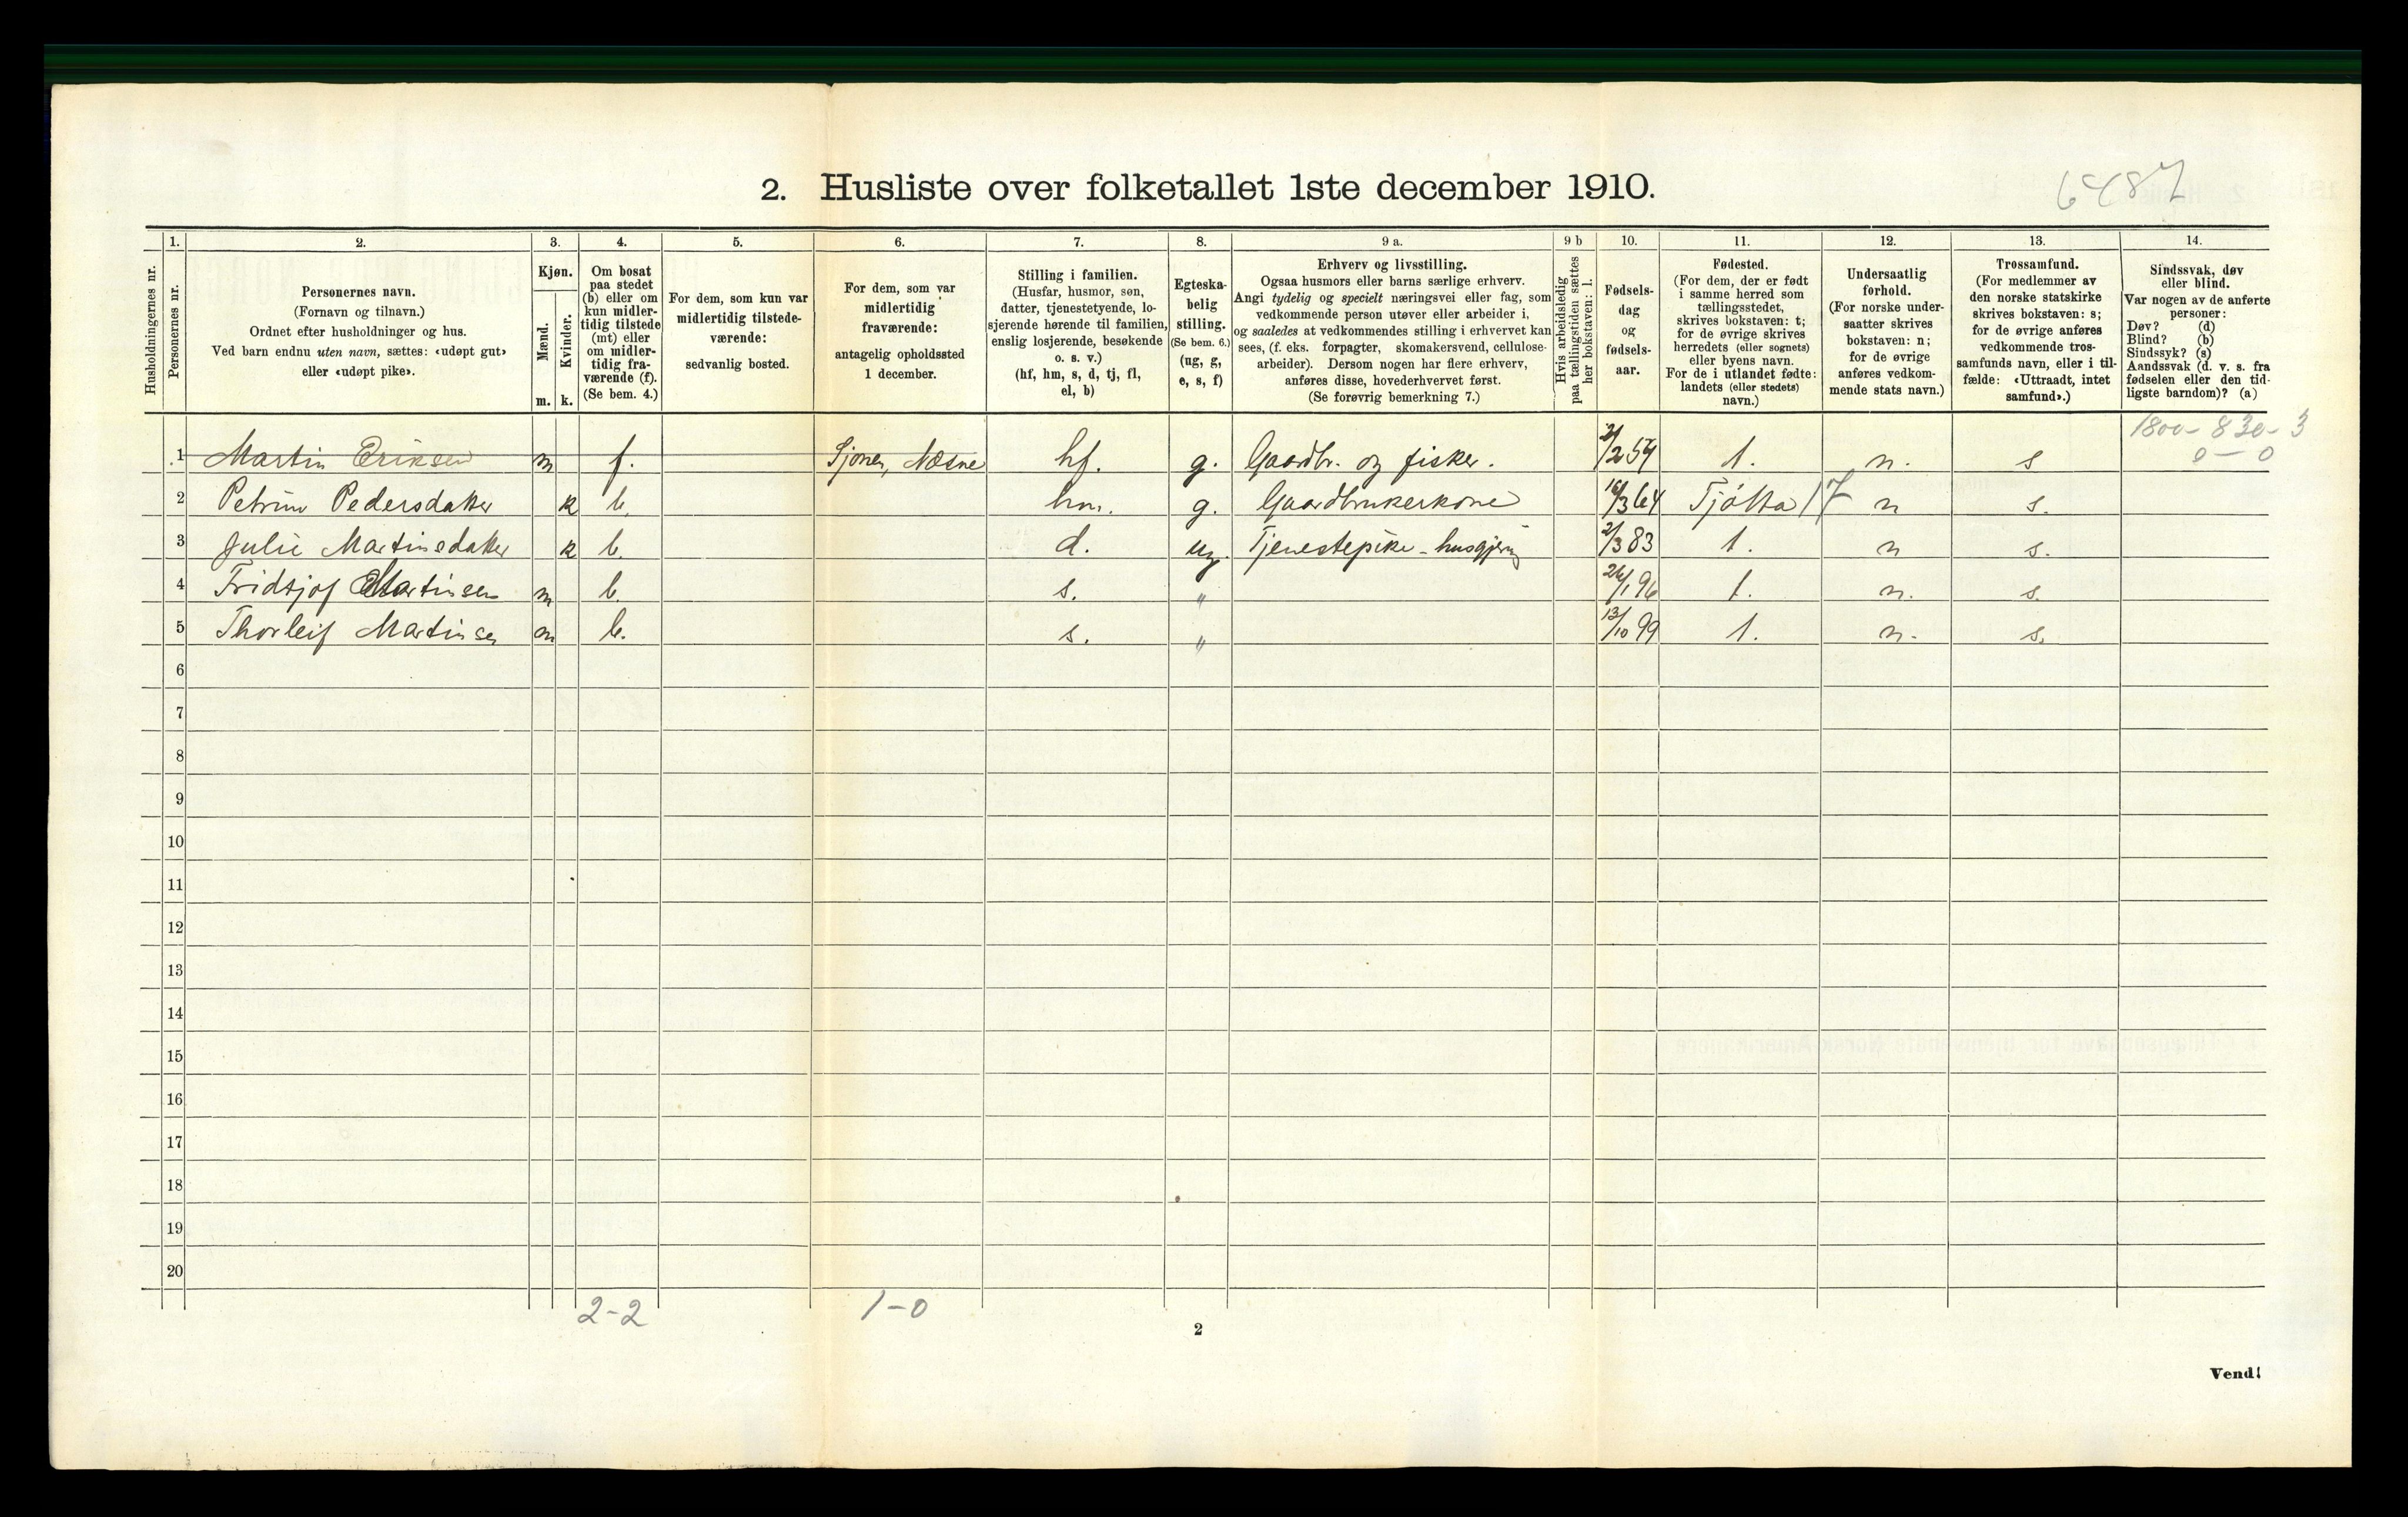 2. Husliste over folketallet 1ste december 1910.
6487
Husholdningernes nr.
1. Personernes nr.
2. Personernes navn. (Fornavn og tilnavn.) Ordnet efter husholdninger og hus. Ved barn endnu uten navn, sættes: «udøpt gut» eller «udøpt pike».
3. Kjøn. Mænd. m. Kvinder. k.
4. Om bosat paa stedet (b) eller om kun midlertidig tilstede (mt) eller om midlertidig fraværende (f). (Se bem. 4.)
5. For dem, som kun var midlertidig tilstedeværende: sedvanlig bosted.
6. For dem, som var midlertidig fraværende: antagelig opholdssted 1 december.
7. Stilling i familien. (Husfar, husmor, søn, datter, tjenestetyende, losjerende hørende til familien, enslig losjerende, besøkende o. s. v.) (hf, hm, s, d, tj, fl, el, b)
8. Egteskabelig stilling. (Se bem. 6.) (ug, g, e, s, f)
9 a. Erhverv og livsstilling. Ogsaa husmors eller barns særlige erhverv. Angi tydelig og specielt næringsvei eller fag, som vedkommende person utøver eller arbeider i, og saaledes at vedkommendes stilling i erhvervet kan sees, (f. eks. forpagter, skomakersvend, cellulosearbeider). Dersom nogen har flere erhverv, anføres disse, hovederhvervet først. (Se forøvrig bemerkning 7.)
9 b Hvis arbeidsledig paa tællingstiden sættes her bokstaven: l.
10. Fødselsdag og fødselsaar.
11. Fødested. (For dem, der er født i samme herred som tællingsstedet, skrives bokstaven: t; for de øvrige skrives herredets (eller sognets) eller byens navn. For de i utlandet fødte: landets (eller stedets) navn.)
12. Undersaatlig forhold. (For norske undersaatter skrives bokstaven: n; for de øvrige anføres vedkommende stats navn.)
13. Trossamfund. (For medlemmer av den norske statskirke skrives bokstaven: s; for de øvrige anføres vedkommende trossamfunds navn, eller i tilfælde: «Uttraadt, intet samfund».)
14. Sindssvak, døv eller blind. Var nogen av de anførte personer: Døv? (d) Blind? (b) Sindssyk? (s) Aandssvak (d. v. s. fra fødselen eller den tidligste barndom)? (a)
1800 - 830 - 3
0 - 0
1 Martin Eriksen m f. Sjonen, Næsne hf. g. Gaardbr. og fisker. t. n. s
2 Petrine Pedersdatter k b. hm. g. Gaardbrukerkone 16/3 64 Tjøtta 17 n s.
3 Julie Martinsdatter k b. d. ug. Tjenestepike - husgjerning 2/3 83 t. n s.
4 Fridtjof Martinsen m b. s. " 26/1 96 t. n. s.
5 Thorleif Martinsen m b. s. " 13/10 99 t. n. s.
6
7
8
9
10
11
12
13
14
15
16
17
18
19
20
2-2 1-0
2
Vend!